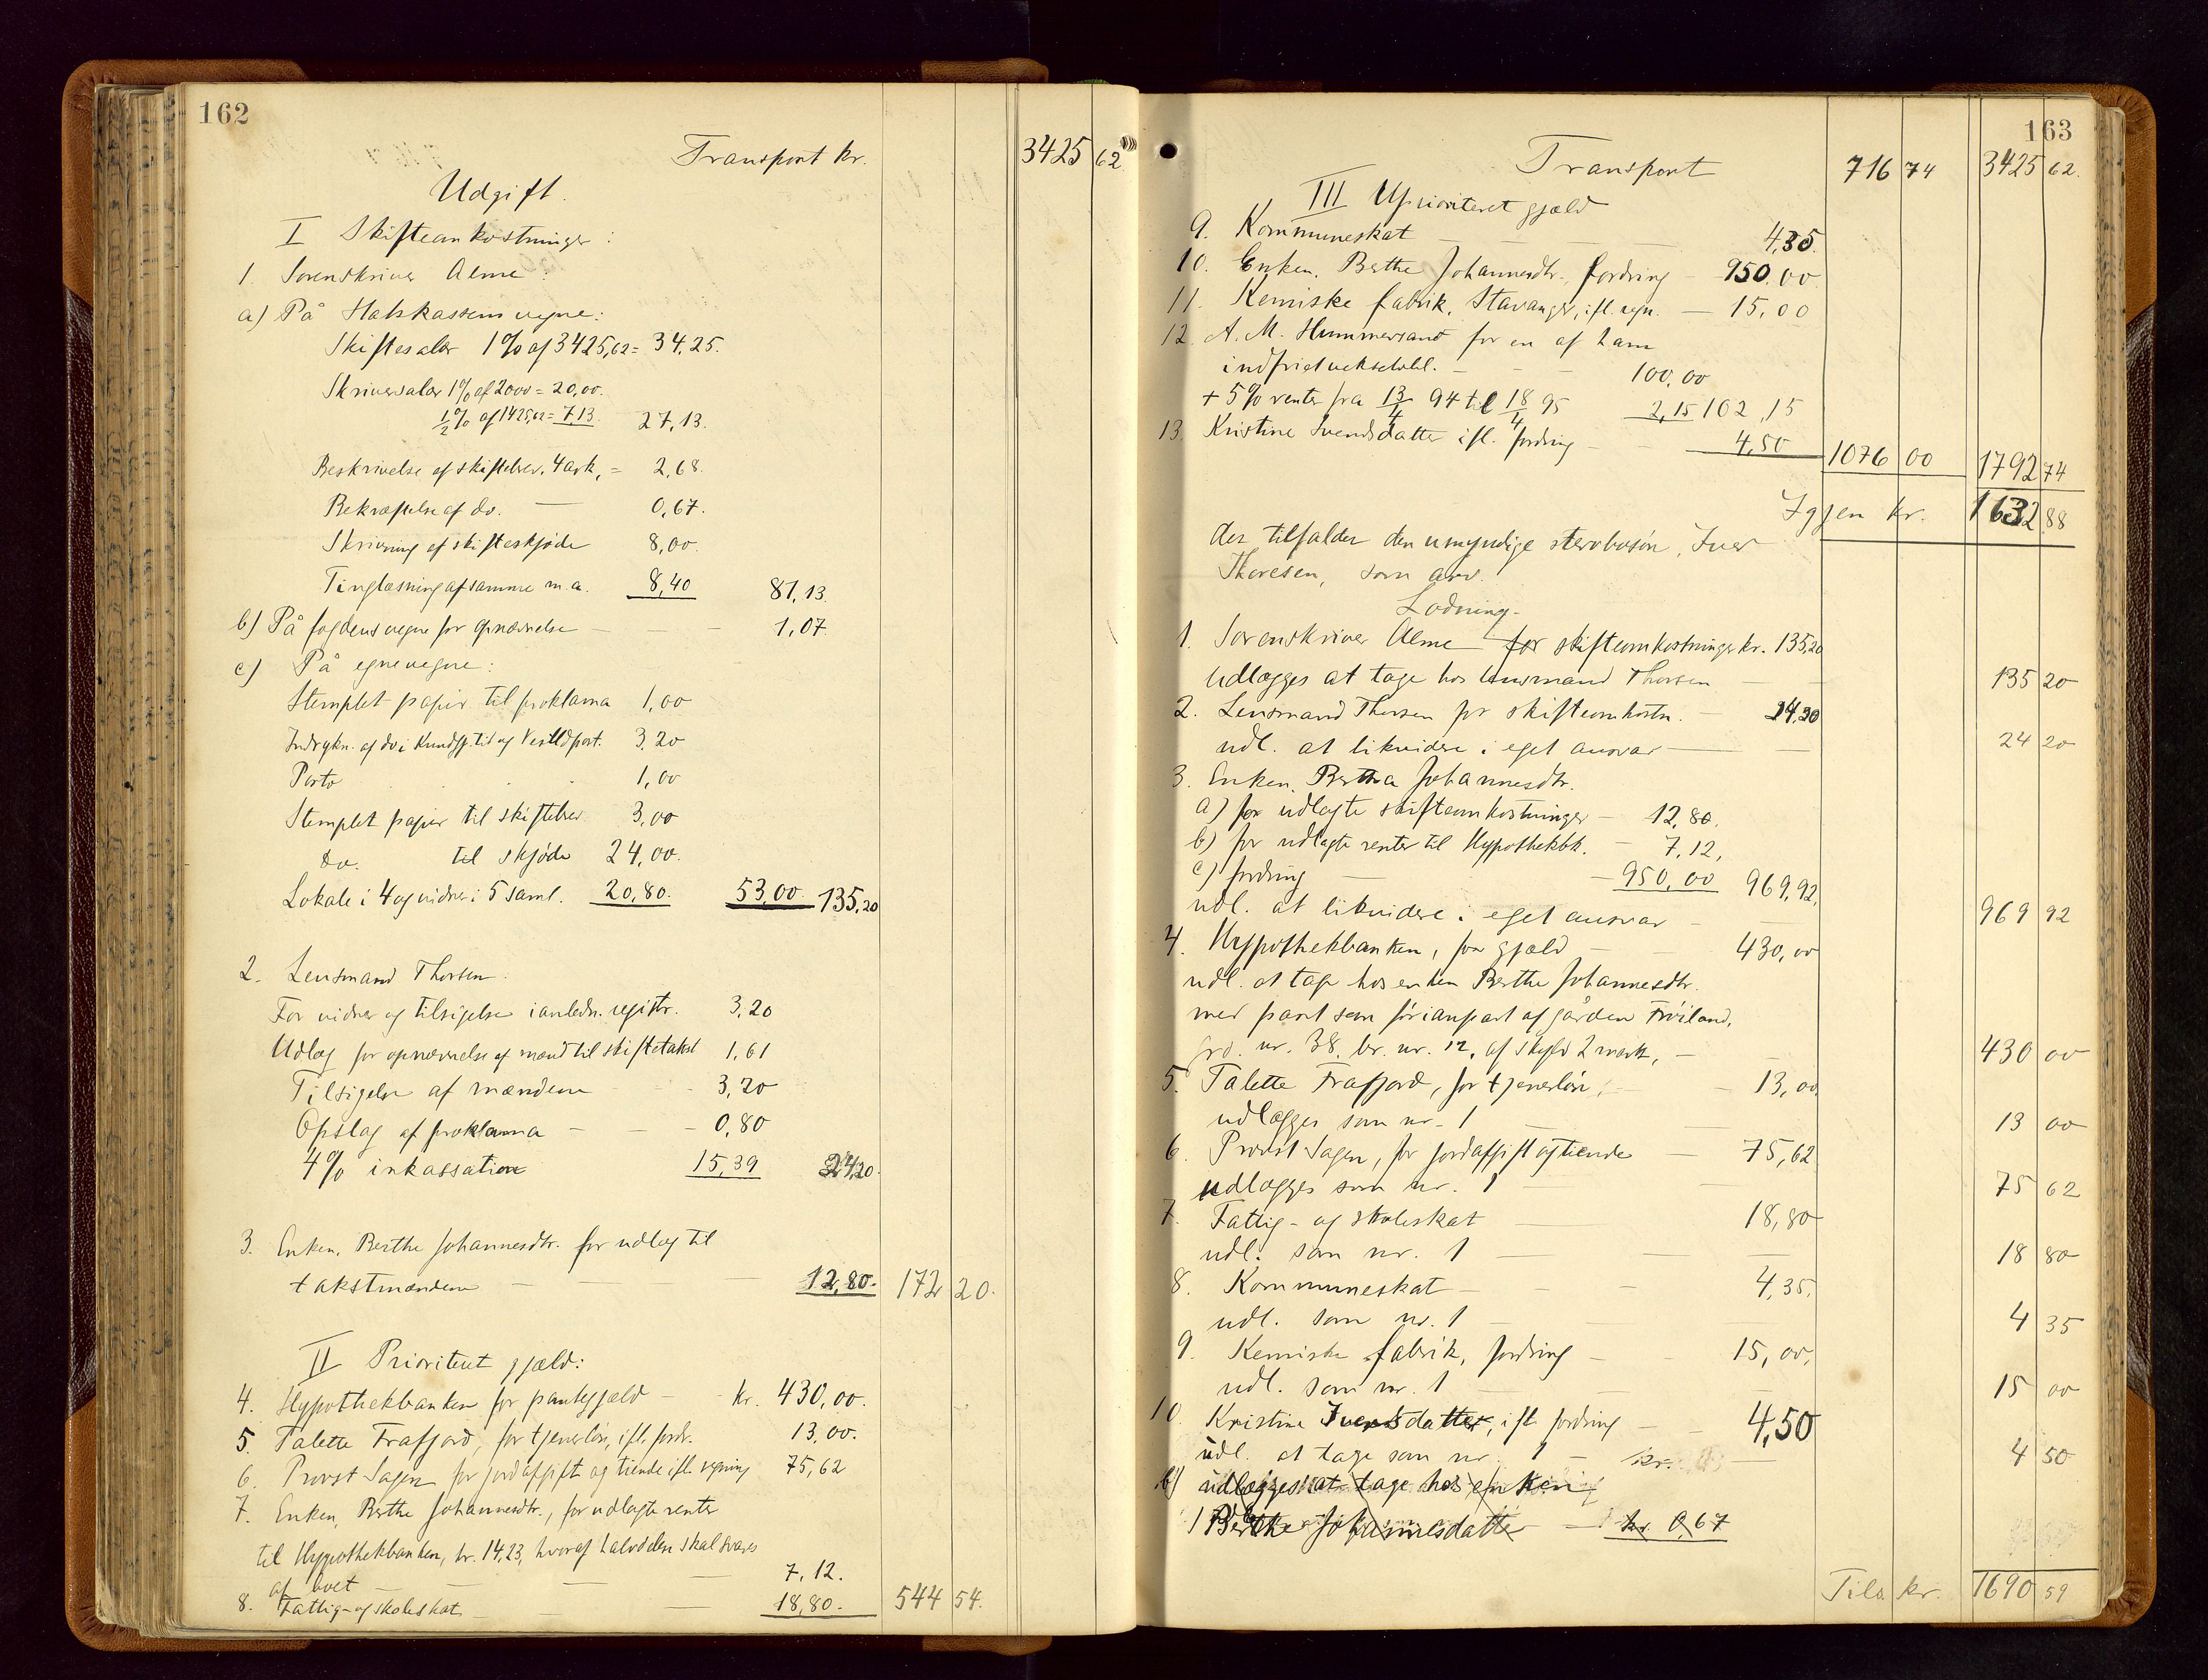 162
Transport kr. 3425 62
Udgift.
I Skifteomkostninger:
1. Sorenskriver Alme:
a) På Statskassens vegne:
Skiftesalær 1% af 3425,62 = 34,25.
Skriversalær 1% af 2000 = 20,00.
1/2% af 1425,62 = 7,13. 27,13.
Beskrivelse af skiftebrev, 4 ark, = 2,68.
Bekræftelse af do. — 0,67.
Skrivning af skifteskjøde 8,00.
Tinglæsning af samme m.a. 8,40 81,13.
b) På fogdens vegne for opnævnelse — — 1,07.
c) På egne vegne:
Stemplet papir til proklama 1,00
Indrykn. af do i Kundgj.tid og Vestldpost. 3,20
Porto 1,00
Stemplet papir til skiftebrev 3,00
do. til skjøde 24,00.
Lokale i 4 og vidner i 5 saml. 20,80. 53,00 135,20
2. Lensmand Thorsen.
For vidner og tilsigelse i anledn. registr. 3,20
Udlæg for opnævnelse af mænd til skiftetakst 1,61
Tilsigelse af mændene - 3,20
Opslag af proklama — — - 0,80
4% inkassation 15,39 24,20.
3. Enken, Berthe Johannesdtr. for udlæg til
takstmændene — — — 12,80. 172 20.
II Prioritert gjæld:
4. Hypothekbanken for pantegjæld — - kr. 430,00.
5. Talette Frafjord, for tjenerløn, ifl. fordr. 13,00.
6. Provst Sagen for jordafgift og tiende ifl. regning 75,62
7. Enken, Berthe Johannesdtr., for udlagte renter
til Hypothekbanken, kr. 14,23, hvoraf halvdelen skal svares
af boet — — — — 7,12.
8. Fattig- og skoleskat — — — 18,80. 544 54.
163
Transport 716 74 3425 62.
III Uprioriteret gjæld
9. Kommuneskat — — — 4,35
10. Enken, Berthe Johannesdtr. fordring — 950,00
11. Kemiske fabrik, Stavanger, ifl. regn. — 15,00
12. A. M. Hummersand for en af ham
indfriet vekselobl. — - - 100,00
+ 5% renter fra 13/4 94 til 18/4 95 2,15 102,15
13. Kristine Svendsdatter ifl. fordring — 4,50 1076 00 1792 74
Igjen kr. 1632 88
der tilfalder den umyndige stervbosøn, Iver
Thoresen, som arv.
Lodning.
1. Sorenskriver Alme for skifteomkostninger kr. 135,20
udlægges at tage hos lensmand Thorsen — — 135 20
2. Lensmand Thorsen for skifteomkostn. — 24,20
udl. at likvidere i eget ansvar — — 24 20
3. Enken, Bertha Johannesdtr.
a) for udlagte skifteomkostninger — 12,80.
b) for udlagte renter til Hypothekbk. — 7,12,
c) fordring — — 950,00 969,92.
udl. at likvidere i eget ansvar — — 969 92
4. Hypothekbanken, for gjæld — 430,00
udl. at tage hos enken Berthe Johannesdtr.
med pant som før i anpart af gården Frøiland,
grd. nr. 38, br. nr. 12, af skyld 2 mark, — — 430 00
5. Talette Frafjord, for tjenerløn, — — 13,00
udlægges som nr. 1 — — 13 00
6. Provst Sagen, for jordafgift og tiende — 75,62
udlægges som nr. 1 — — 75 62
7. Fattig- og skoleskat — 18,80
udl. som nr. 1 — — 18 80
8. Kommuneskat — - - 4,35.
udl. som nr. 1 — — 4 35
9. Kemiske fabrik, fordring — - 15,00,
udl. som nr. 1 — — 15 00
10. Kristine Svendsdatter, ifl. fordring — - 4,50
udl. at tage som nr. 1 — kr. — 4 50
b) udlægges at tage hos enken
Berthe Johannesdatter — kr. 0,67
Tils. kr. 1690 59